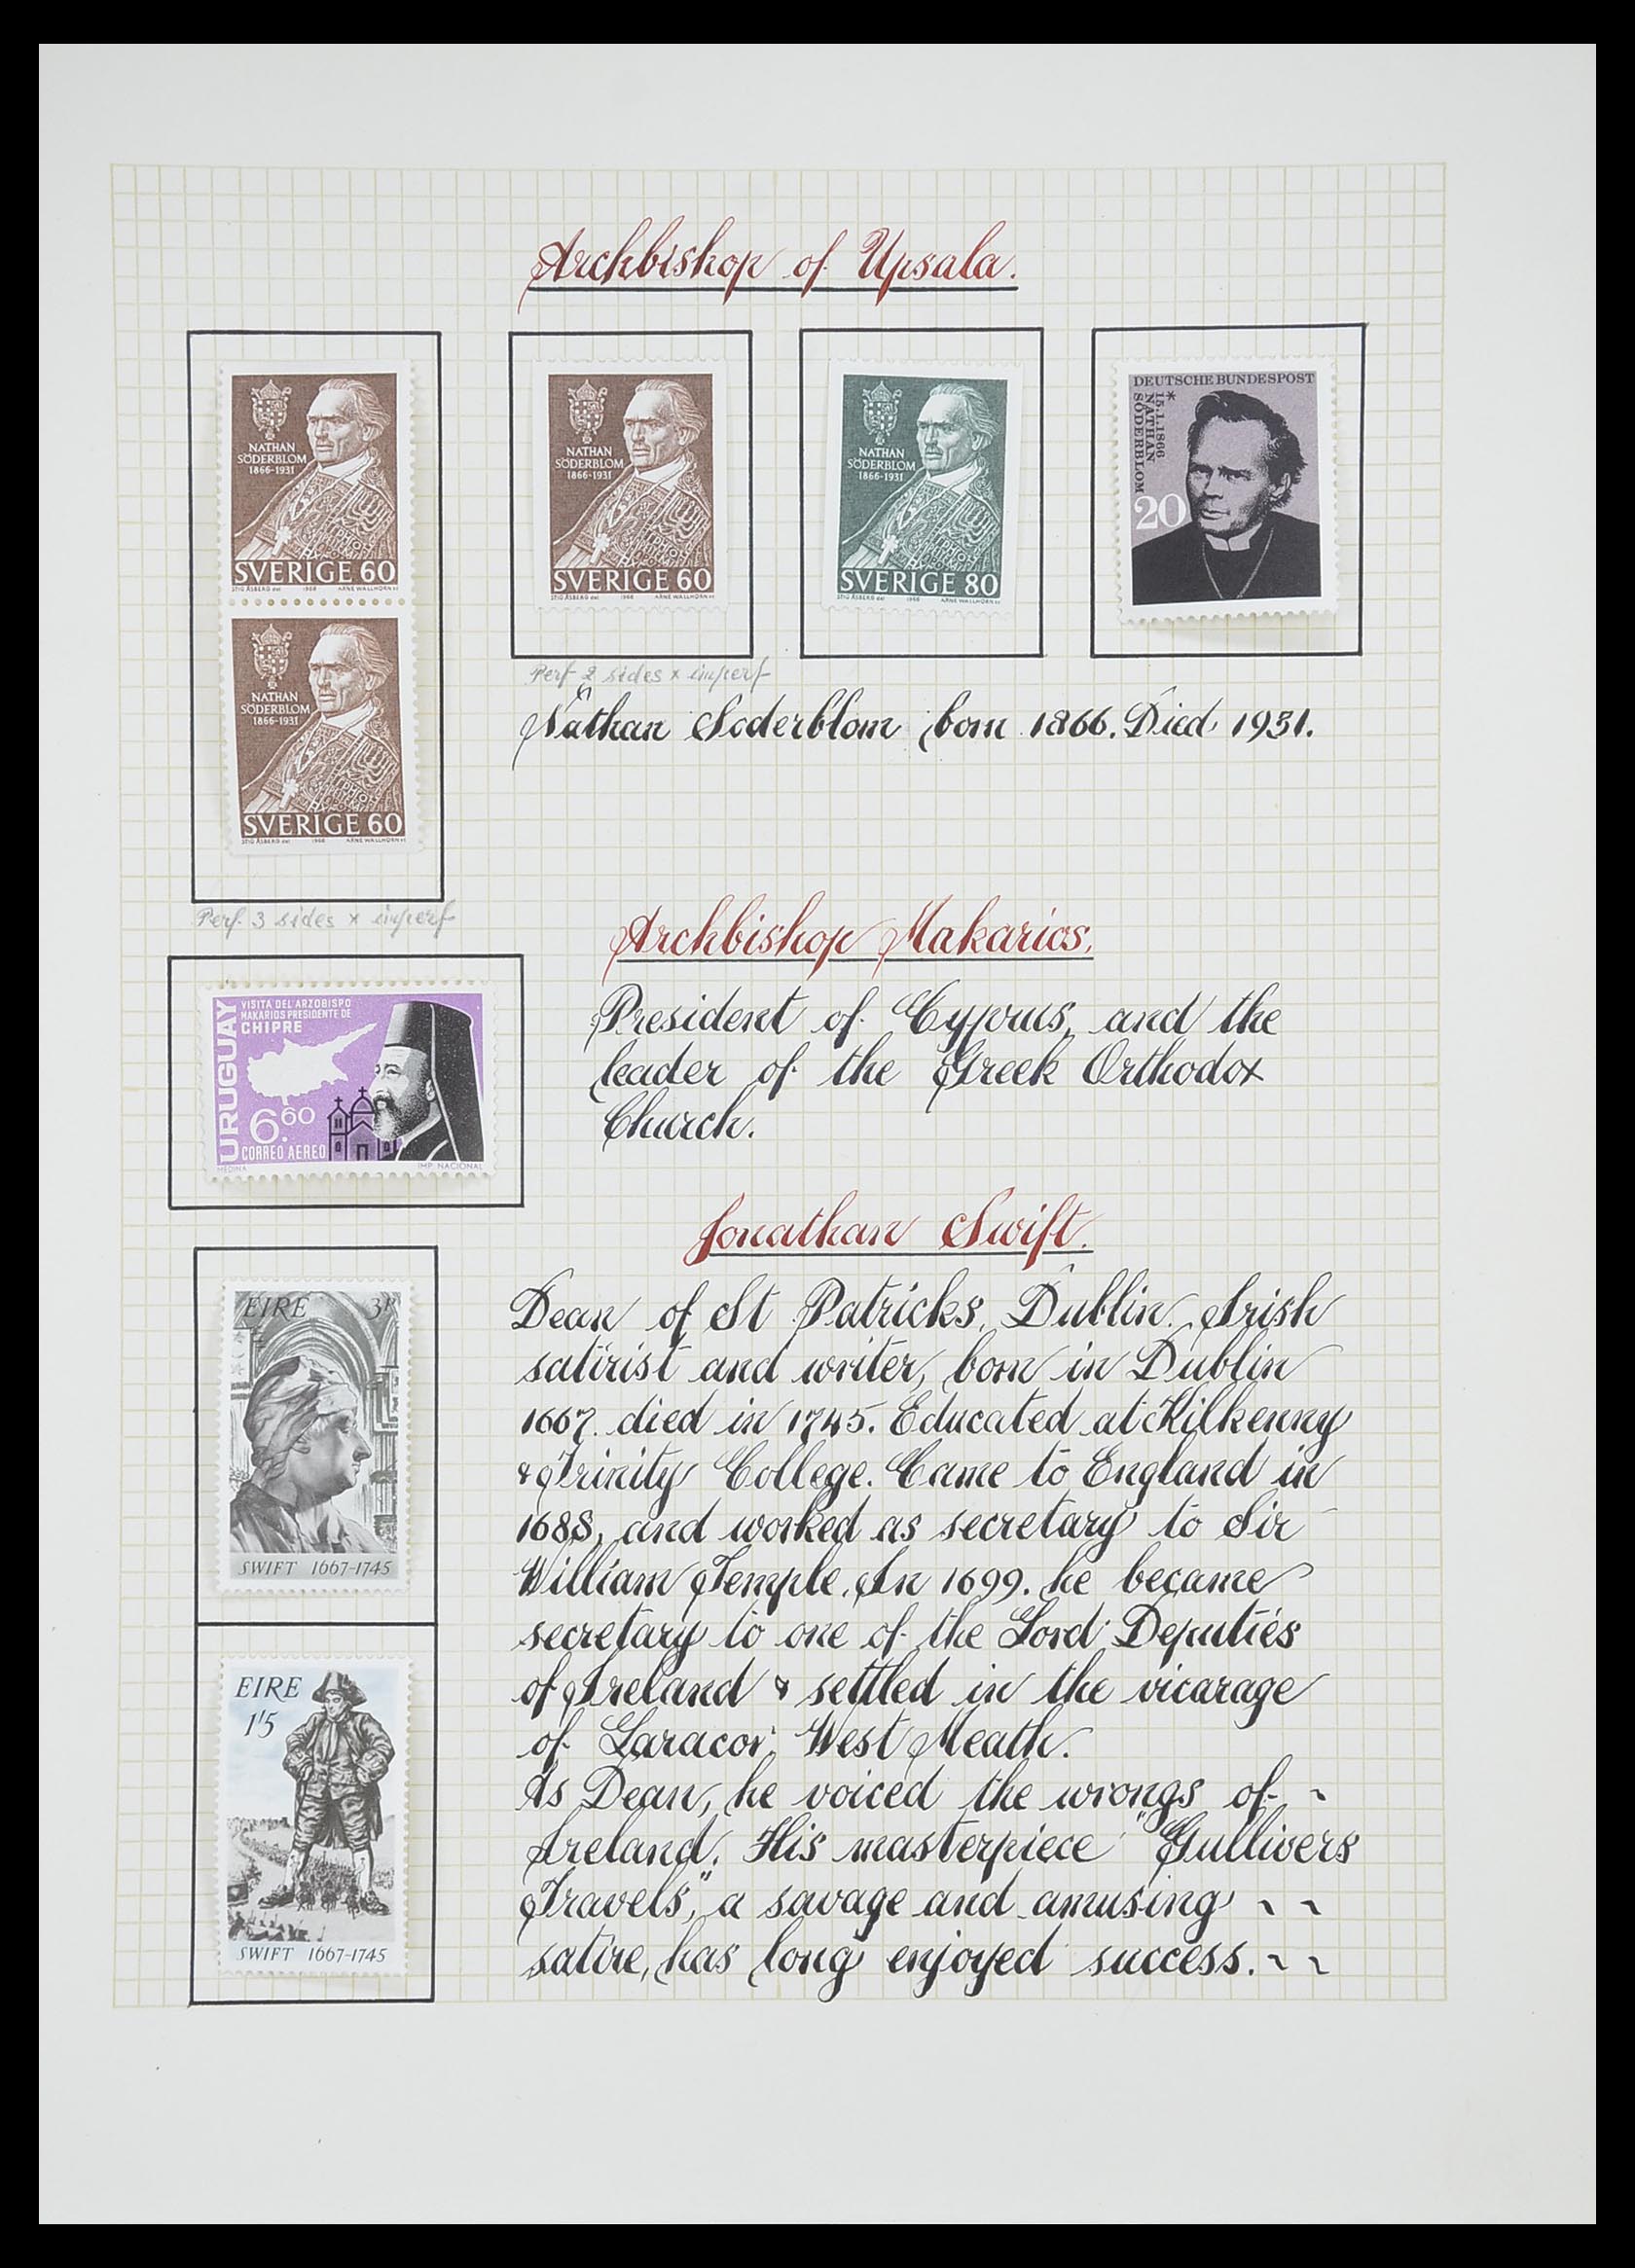 Archbishop of Upsala.
NATHAN
SÖDERBLOM
1866-1931
SVERIGE 60
STIG ÅSBERG del 1966 ARNE WALLHORN sc
NATHAN
SÖDERBLOM
1866-1931
SVERIGE 60
STIG ÅSBERG del 1966 ARNE WALLHORN sc
Perf 3 sides x imperf
NATHAN
SÖDERBLOM
1866-1931
SVERIGE 60
STIG ÅSBERG del 1966 ARNE WALLHORN sc
Perf 2 sides x imperf
NATHAN
SÖDERBLOM
1866-1931
SVERIGE 80
STIG ÅSBERG del 1966 ARNE WALLHORN sc
DEUTSCHE BUNDESPOST
* 15.1.1866
NATHAN
SÖDERBLOM
20
Nathan Soderblom born 1866. Died 1931.
Archbishop Makarios.
URUGUAY
VISITA DEL ARZOBISPO
MAKARIOS PRESIDENTE DE
CHIPRE
6.60
CORREO AEREO
MEDINA IMP NACIONAL
President of Cyprus, and the
leader of the Greek Orthodox
Church.
Jonathan Swift.
EIRE 3P
SWIFT 1667-1745
EIRE
1'5
SWIFT 1667-1745
Dean of St Patricks, Dublin. Irish
satirist and writer, born in Dublin
1667. died in 1745. Educated at Kilkenny
& Trinity College. Came to England in
1688, and worked as secretary to Sir
William Temple. In 1699. he became
secretary to one of the Lord Deputies
of Ireland & settled in the vicarage
of Laracor, West Meath.
As Dean, he voiced the wrongs of ~
Ireland. His masterpiece "Gullivers
Travels", a savage and amusing ~ ~
satire, has long enjoyed success. ~ ~